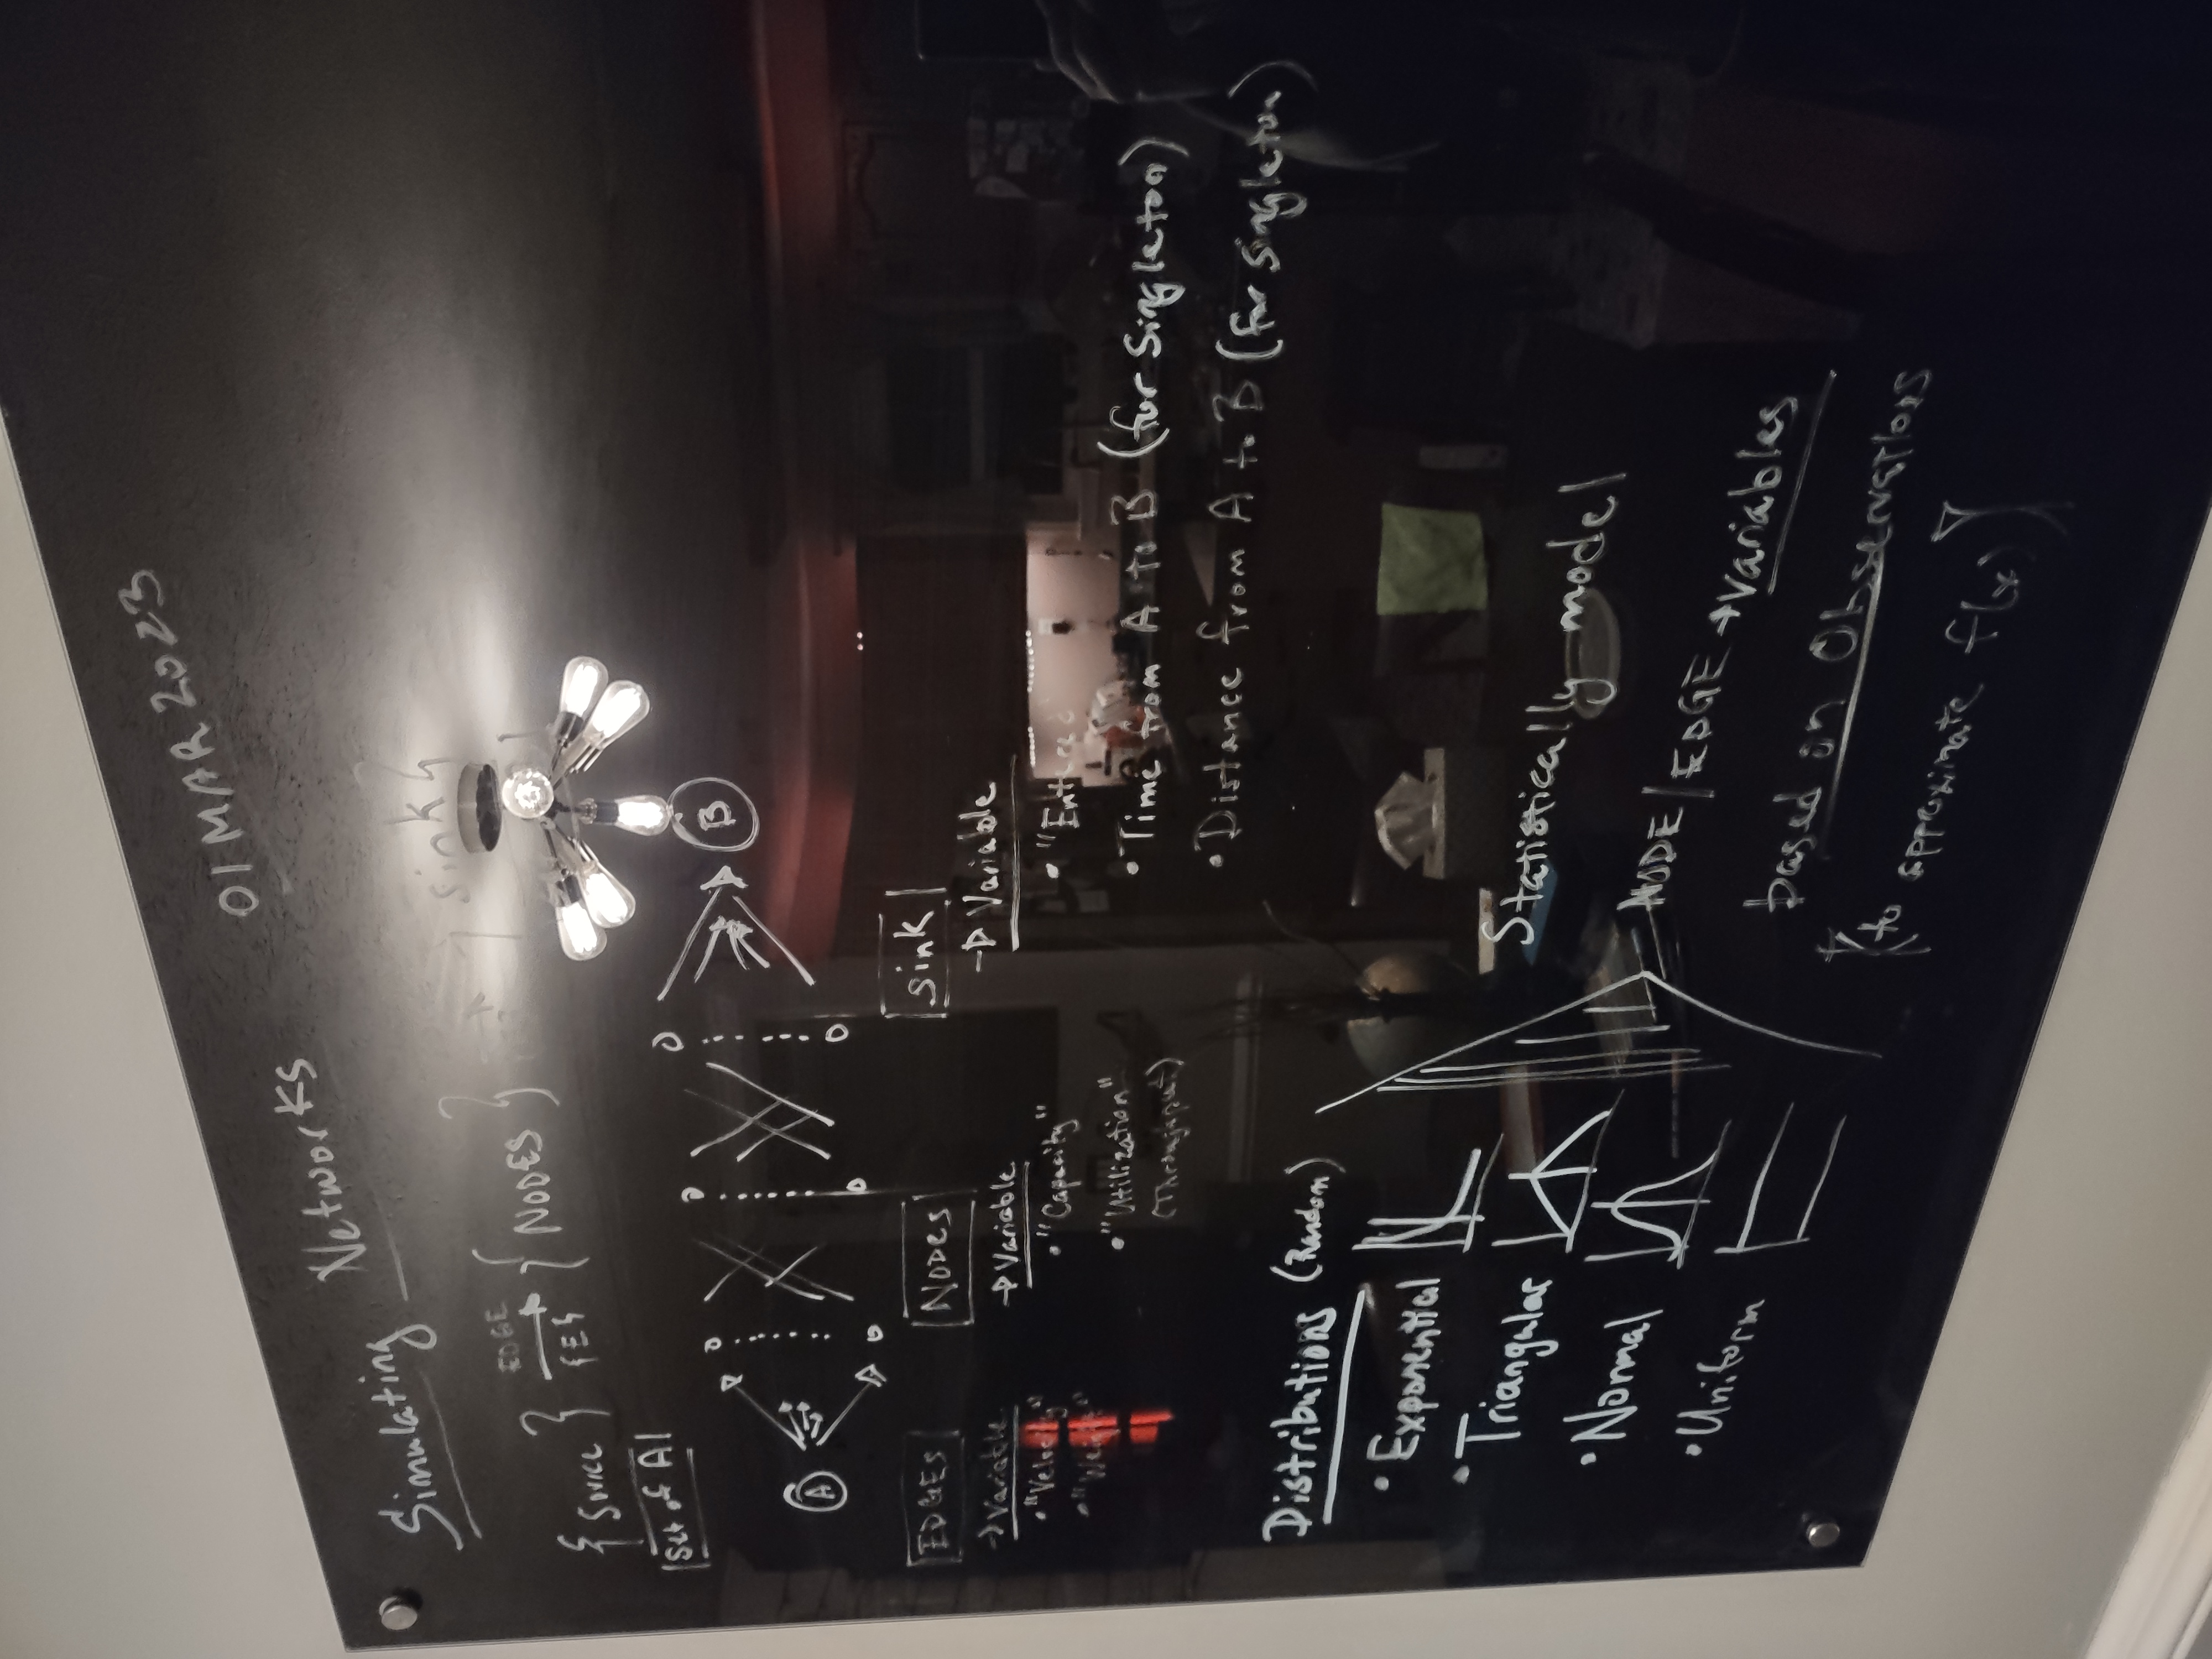 01 MAR 2023
Simulating Networks
{ Source } EDGE {E} { NODES } sink }
|Set of A|
A B
EDGEs
→ Variable
• "Velocity"
• "Weight"
NODES
→ Variable
• "Capacity"
• "Utilization"
(Throughput)
sink
→ Variable
• Time from A to B (for singleton)
• Distance from A to B (for singleton)
Distributions (Random)
• Exponential
• Triangular
• Normal
• Uniform
Statistically model
NODE/EDGE → variables
based on Observations
(to approximate f(x))